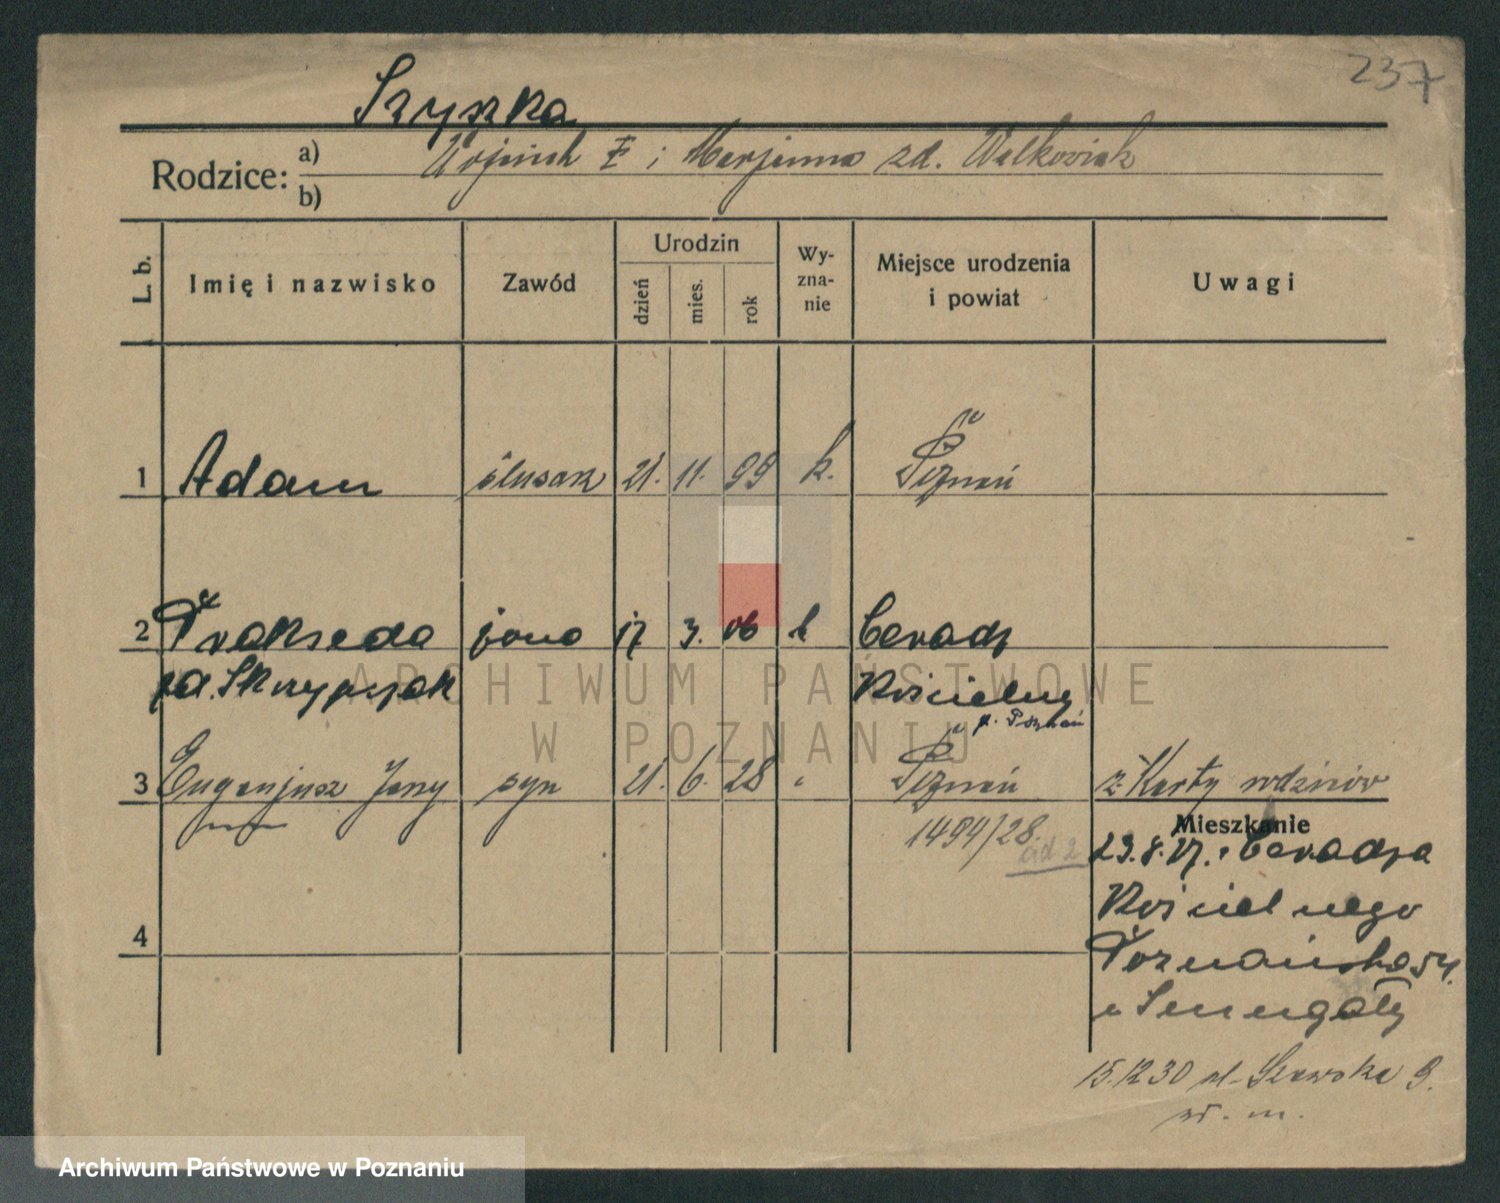 237
Szyszka
Rodzice: a) Wojciech i Marjanna zd. Walkowiak
b)
L. b. Imię i nazwisko Zawód Urodzin dzień mies. rok Wy-zna-nie Miejsce urodzenia i powiat Uwagi
1 Adam ślusarz 21. 11. 99 k. Poznań
2 Prakseda żona 17 3. 06 k Ceradz
zd. Skrzypczak Kościelny
p. Poznań
3 Eugenjusz Jerzy syn 21. 6. 28 " Poznań z Karty rodziców
1494/28. Mieszkanie
ad 2 23.8.27. z Ceradza
Kościelnego
4 Poznańska 54.
u
15.12.30 ul. Szewska 9.
w. m.
ARCHIWUM PAŃSTWOWE
W POZNANIU
Archiwum Państwowe w Poznaniu